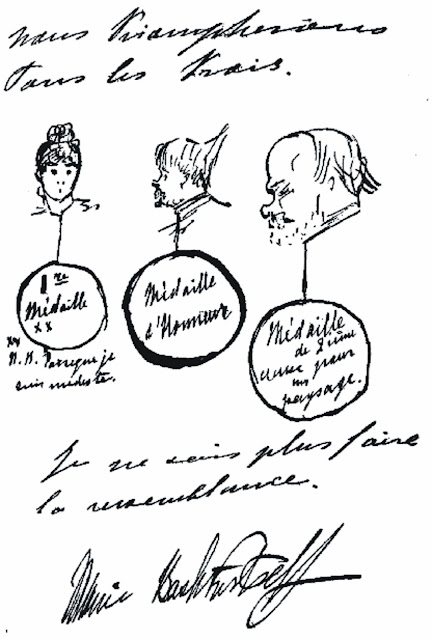 nous triompherions
tous les trois.
1re
Médaille
xx
Médaille
d'Honneur
Médaille
de 2ième
classe pour
un
paysage.
xx
N. B. Parceque je
suis modeste.
Je ne sais plus faire
la ressemblance.
Marie Bashkirtseff